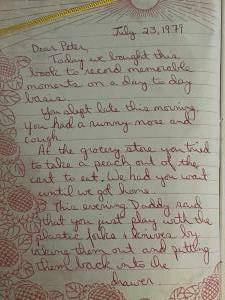 July 23, 1979
Dear Peter,
Today we bought this
book to record memorable
moments on a day to day
basis.
You slept late this morning.
You had a runny nose and
cough.
At the grocery store you tried
to take a peach out of the
cart to eat. We had you wait
until we got home.
This evening Daddy said
that you just play with the
plastic forks & knives by
taking them out and putting
them back into the
drawer.